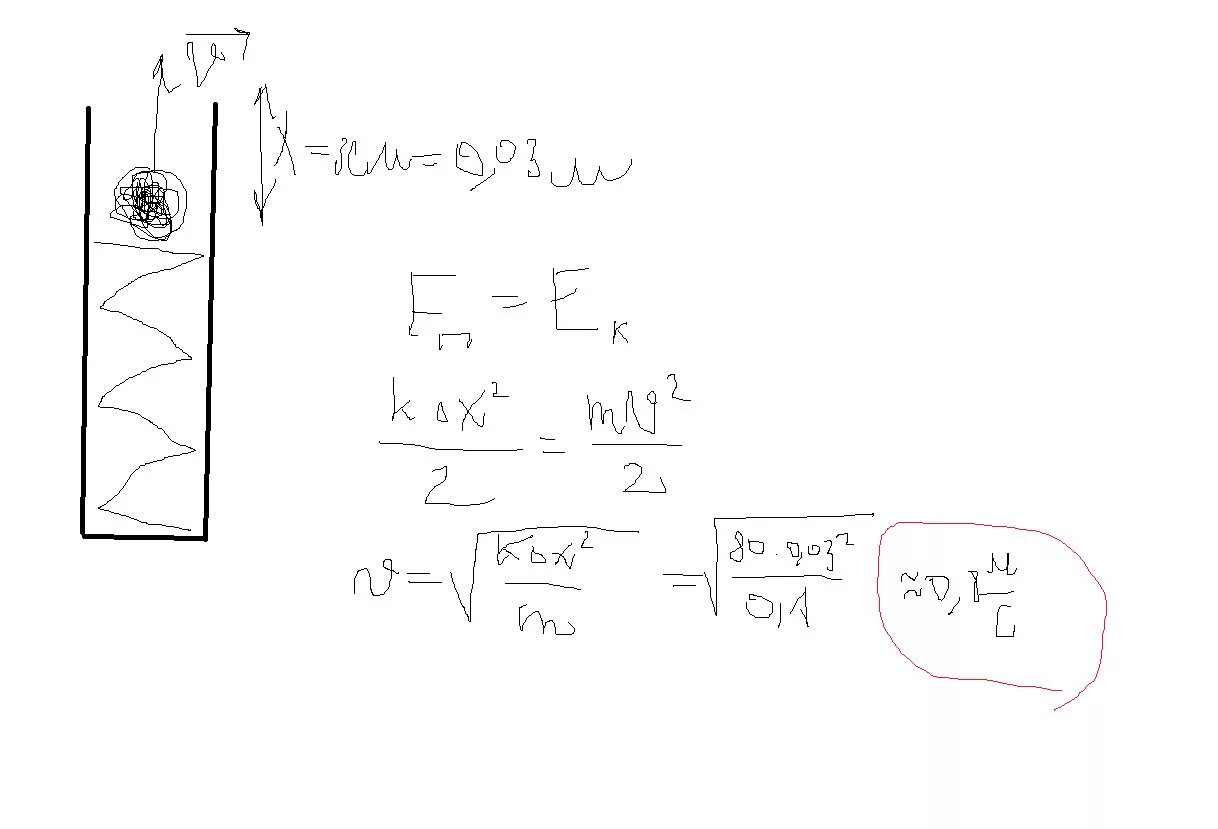 V
X = 3см = 0,03 м
Eп = Eк
k∆x² / 2 = mv² / 2
v = √(k∆x² / m) = √(80 · 0,03² / 0,1) ≈ 0,1 м/с